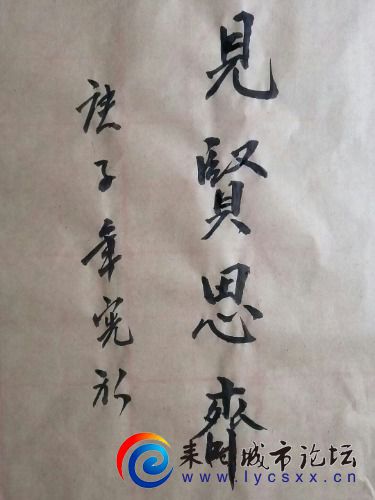 見賢思齊
庚子年
耒阳城市论坛
www.lycsxx.cn